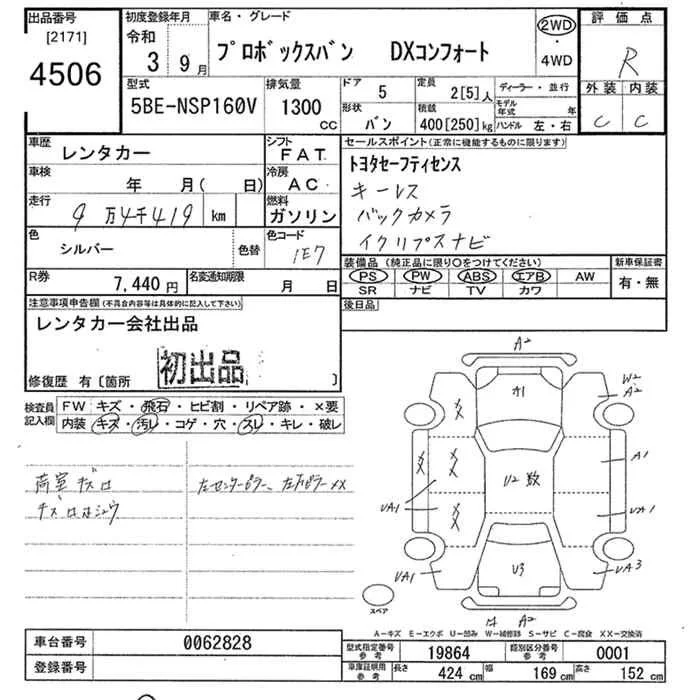 出品番号
[2171]
4506
初度登録年月
令和
3 9月
車名・グレード
プロボックスバン DXコンフォート
2WD
・
4WD
評価点
R
外装 内装
C C
型式
5BE-NSP160V
排気量
1300
CC
ドア
5
定員
2[5]人
形状
バン
積載
400[250]kg
ディーラー・並行
モデル年式 年
ハンドル 左・右
車歴
レンタカー
シフト
FAT
車検
年 月( 日)
冷房
AC
走行
9万4千419 km
燃料
ガソリン
色
シルバー
色替
色コード
1E7
R券
7,440円
名変通知期限
月 日
セールスポイント(正常に機能するものに限ります)
トヨタセーフティセンス
キーレス
バックカメラ
イクリプスナビ
装備品(純正品に限り○をつけてください)
PS PW ABS エアB AW
SR ナビ TV カワ
新車保証書
有・無
後日品
注意事項申告欄(不具合内容等は具体的に記入して下さい)
レンタカー会社出品
初出品
修復歴 有〔箇所 〕
検査員
記入欄
FW キズ・飛石・ヒビ割・リペア跡・×要
内装 キズ・汚レ・コゲ・穴・スレ・キレ・破レ
荷室キズ
左センターピラー、左 ピラーXX
A2
A1
W2
A2
XX
XX
XX
XX
U2 数
A1
UA1
UA1
UA1
U3
UA3
スペア
A2
A-キズ E-エクボ U-凹み W-補修跡 S-サビ C-腐食 XX-交換済
車台番号
0062828
登録番号
型式指定番号
参考
19864
類別区分番号
参考
0001
車庫証明用
参考
長さ
424 cm
幅
169 cm
高さ
152 cm